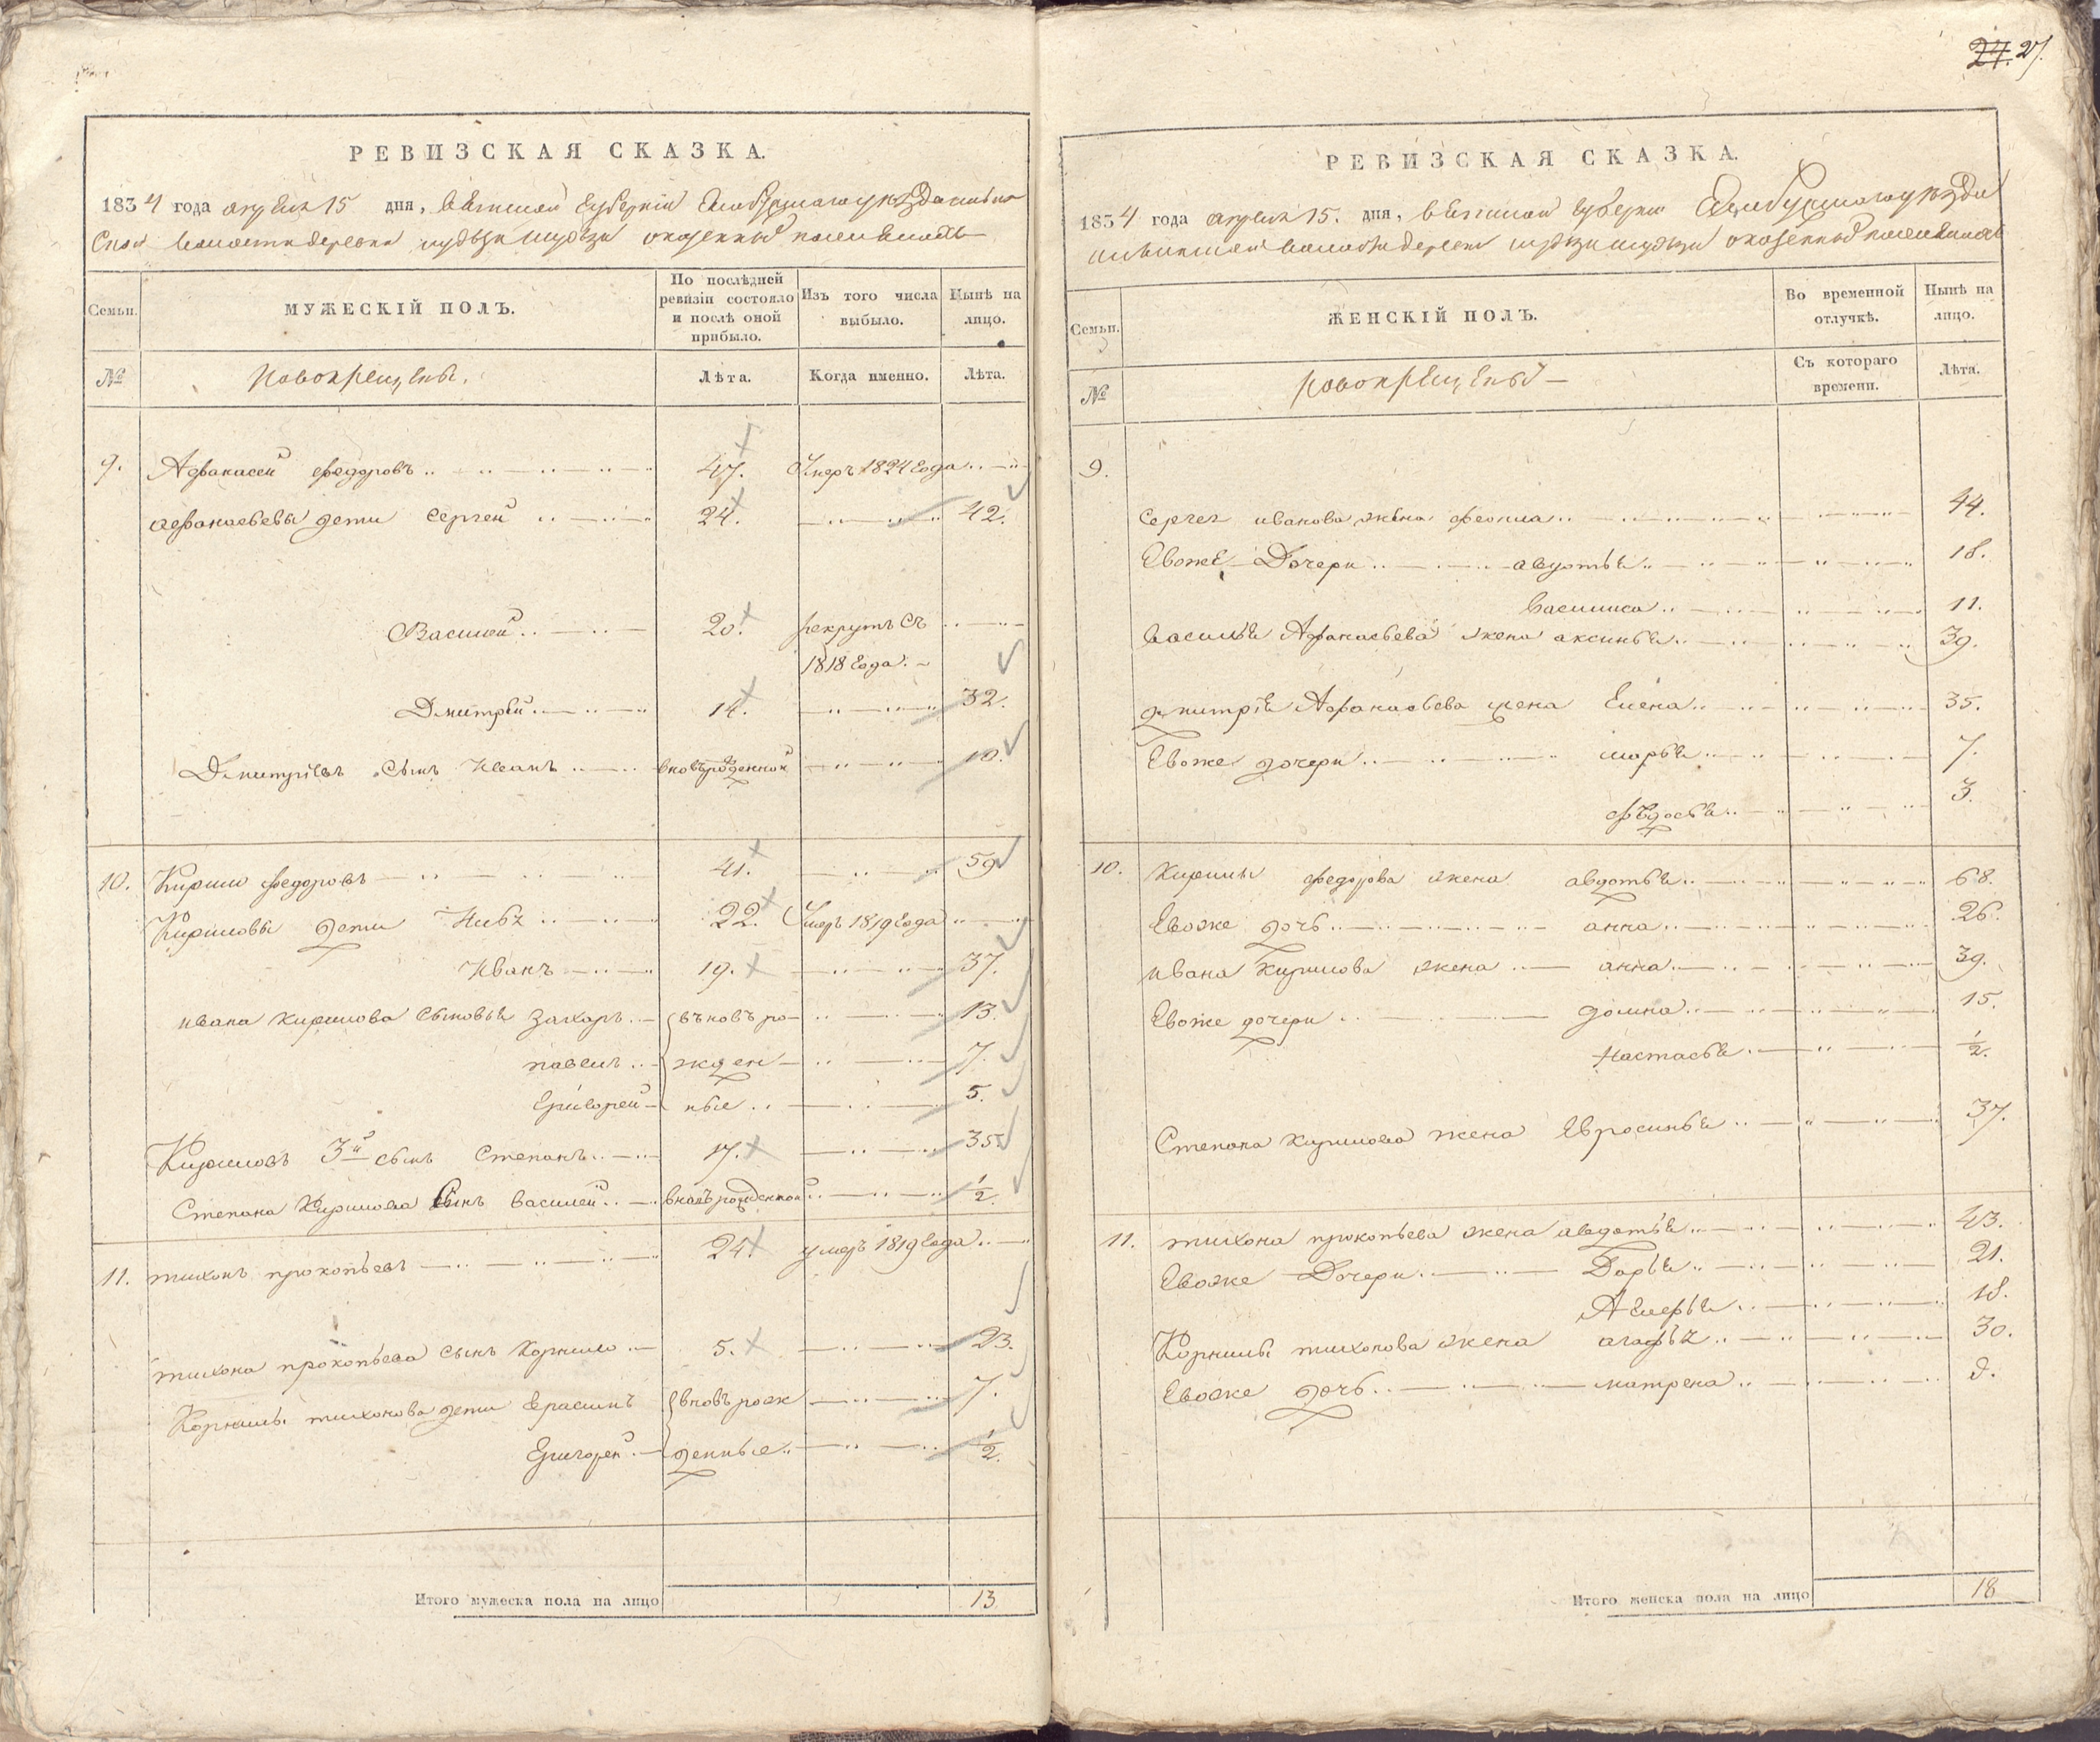 24. 27.
РЕВИЗСКАЯ СКАЗКА.
1834 года апреля 15 дня, Вятской Губернiи Елабужскаго уезда
ской волости деревни
Семьи.
МУЖЕСКІЙ ПОЛЪ.
По послѣдней ревизіи состояло и послѣ оной прибыло.
Изъ того числа выбыло.
Нынѣ на лицо.
№
Новокрещены.
Лѣта.
Когда именно.
Лѣта.
9. Афанасей Федоровъ 47. Умеръ 1824 Года
Афанасьевы дети Сергей 24. 42.
Василей 20. рекрутъ съ
1818 Года.
Дмитрей 14. 32.
Дмитріевъ сынъ Иванъ вновьрожденной 10.
10. Кирило Федоровъ 41. 59
Кириловы дети 22. Умеръ 1819 Года
Иванъ 19. 37.
Ивана Кирилова сыновья Захаръ вновь ро- 13.
Павелъ жден- 7.
Григорей ные 5.
Кириловъ 3й сынъ Степанъ 17. 35.
Степана Кирилова Сынъ Василей вновьрожденной ½.
11. Тихонъ Прокопьевъ 24. умеръ 1819 Года
Тихона Прокопьева сынъ Корнило 5. 23.
Корнилы Тихонова дети Герасимъ вновь рож 7.
Григорей денные ½.
Итого мужеска пола на лицо 13
РЕВИЗСКАЯ СКАЗКА.
1834 года апреля 15. дня, Вятской Губернiи Елабужскаго уезда
волости деревни
Семьи.
ЖЕНСКІЙ ПОЛЪ.
Во временной отлучкѣ.
Нынѣ на лицо.
№
Новокрещены
Съ котораго времени.
Лѣта.
9.
Сергея жена 44.
Евоже Дочери авдотья 18.
Василиса 11.
Василья Афанасьева жена аксинья 39.
Дмитрія Афанасьева жена Елена 35.
Евоже дочери марья 7.
федосья 3.
10. Кирилы Федорова жена авдотья 68.
Евоже дочь анна 26.
Ивана Кирилова жена анна 39.
Евоже дочери домна 15.
Настасья ½.
Степана Кирилова жена Евросинья 37.
11. Тихона Прокопьева жена авдотья 43.
Евоже Дочери Дарья 21.
18.
Корнилы Тихонова жена агафья 30.
Евоже дочь матрена
Итого женска пола на лицо 18